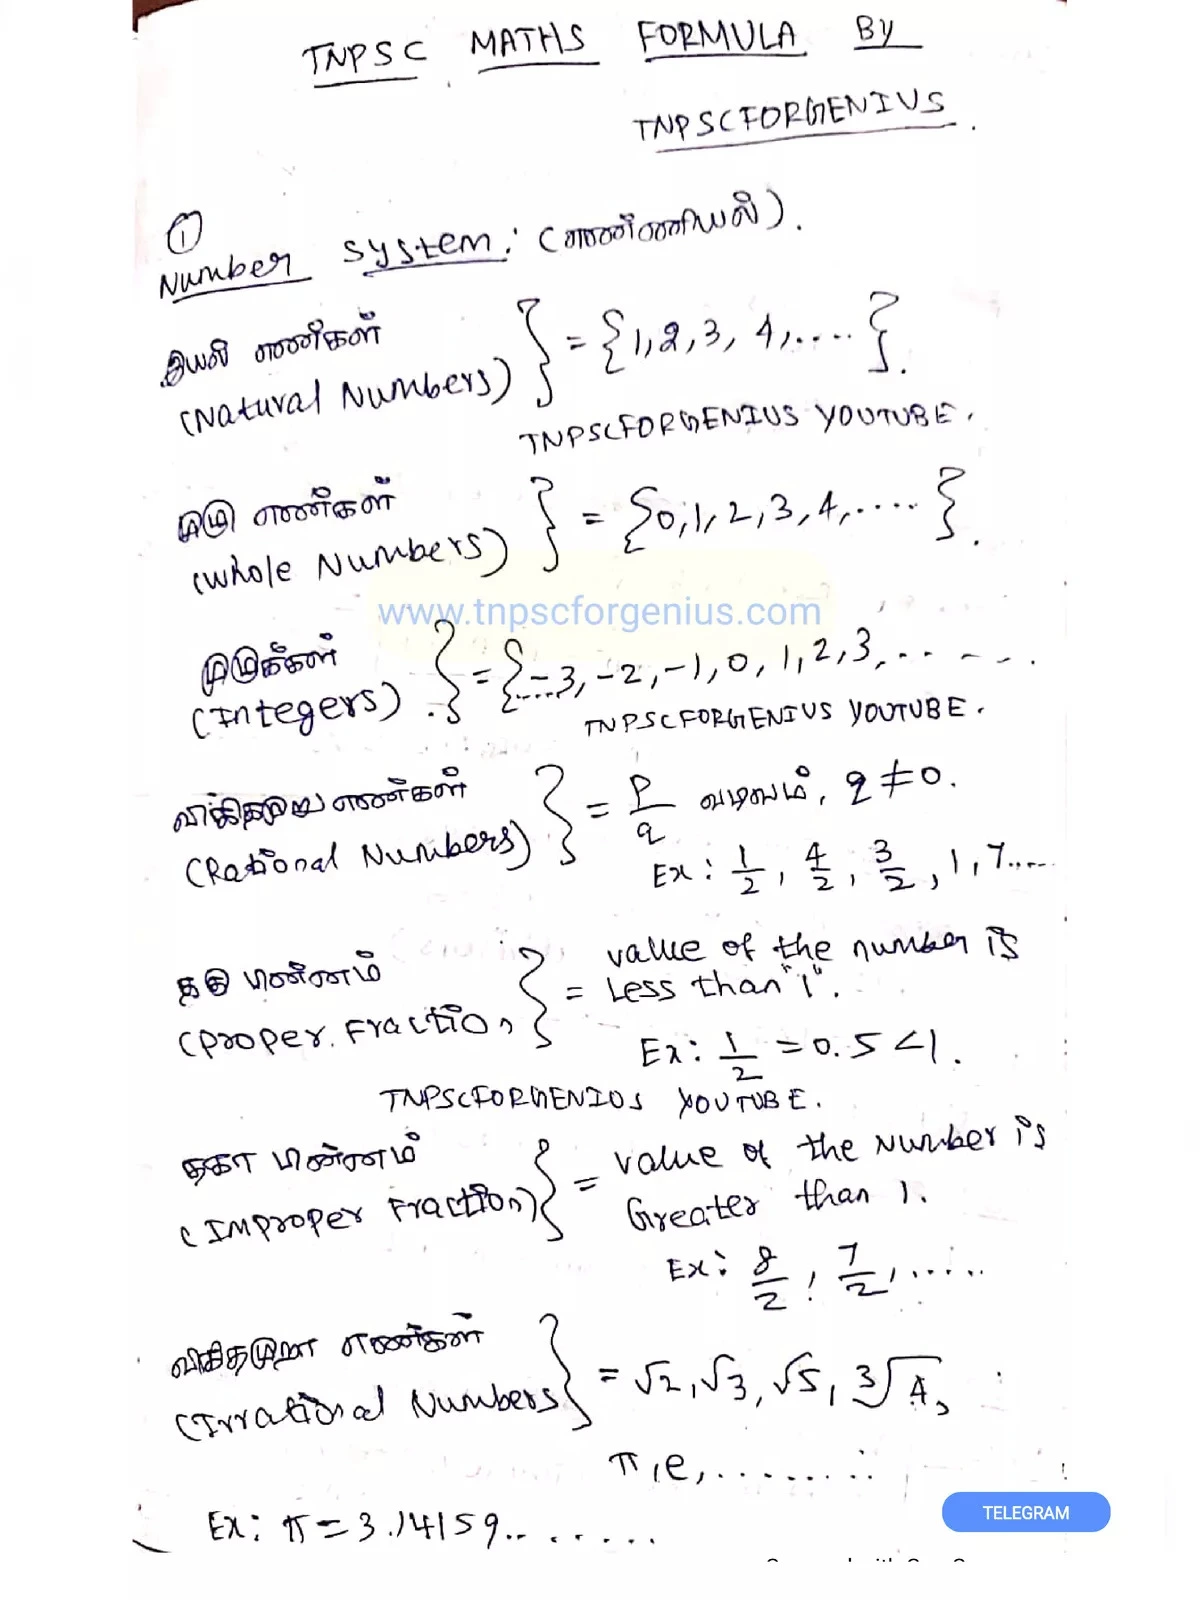 TNPSC MATHS FORMULA BY
TNPSCFORGENIUS.
①
Number System: (எண்ணியல்).
இயல் எண்கள்
(Natural Numbers) } = {1, 2, 3, 4, .... }.
TNPSCFORGENIUS YOUTUBE.
முழு எண்கள்
(Whole Numbers) } = {0, 1, 2, 3, 4, .... }.
www.tnpscforgenius.com
முழுக்கள்
(Integers) } = {....-3, -2, -1, 0, 1, 2, 3, .......
TNPSCFORGENIUS YOUTUBE.
விகிதமுறு எண்கள்
(Rational Numbers) } = p/q வடிவம், q ≠ 0.
Ex: 1/2, 4/2, 3/2, 1, 7.....
தகு பின்னம்
(Proper Fraction } = value of the number is
Less than "1".
Ex: 1/2 = 0.5 < 1.
TNPSCFORGENIUS YOUTUBE.
தகா பின்னம்
(Improper Fraction) } = value of the Number is
Greater than 1.
Ex: 8/2, 7/2, .....
விகிதமுறா எண்கள்
(Irrational Numbers } = √2, √3, √5, ∛4,
π, e, ..........
Ex: π = 3.14159........
TELEGRAM